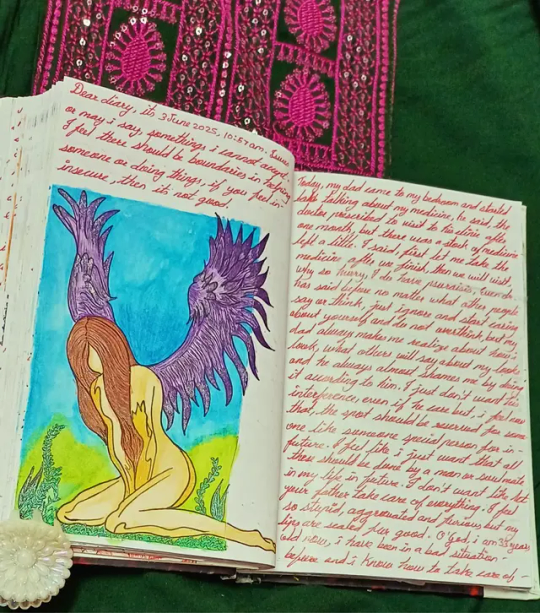 Dear diary, its 3 June 2025, 10:57 am.
or may i say, somethings i cannot accept.
I feel there should be boundaries in
someone or doing things, if you feel in-
insecure, then its not good.
Today, my dad came to my bedroom and started
talking about my medicine, he said, the
doctor prescribed to visit to his clinic after
one month, but there was a stock of medicine
left a little. I said, first let me take the
medicine after we finish, then we will visit,
why so hurry. I do have
has said before no matter what other people
say or think, just ignore and start caring
about yourself and do not overthink, but my
dad always makes me realize about how i
look, what others will say about my looks
and he always almost shames me by doing
it according to him. I just don't want this
interference, even if he care but, i feel
that, the spot should be reserved for some
one like someone special person for in
future. I feel like i just want that all
these should be done by a man or soulmate
in my life in future. I don't want like let
your father take care of everything. I feel
so stupid, aggrevated and furious but my
lips are sealed for good. O God, i am 33 years
old now, i have been in a bad situation
before and i know how to take care of -